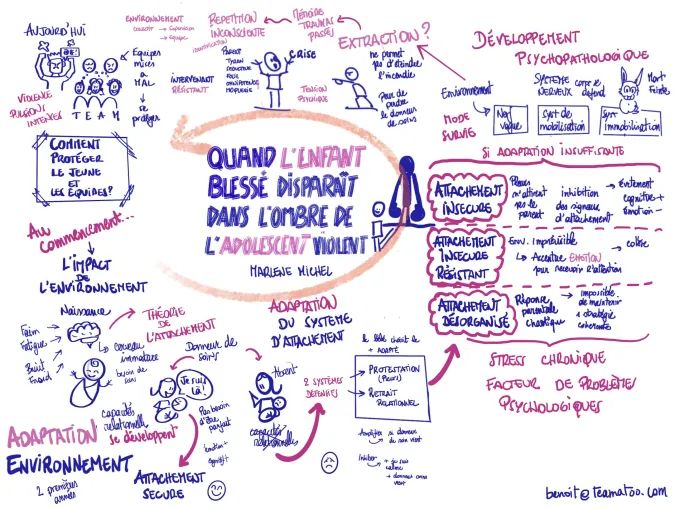 AUJOURD'HUI
VIOLENCE
PULSIONS
INTENSES
TEAM
Équipes
mises
à
MAL
se
protéger
COMMENT
PROTÉGER
LE JEUNE
ET
LES ÉQUIPES?
ENVIRONNEMENT
collectif → Supervision
→ Equipe
REPETITION
INCONSCIENTE
identification
PARENT
TYRAN
INTERVENANT
RÉSISTANT
MÉMOIRE
TRAUMAS
PASSÉS
CRISE
TENSION
PSYCHIQUE
EXTRACTION?
ne permet
pas d'éteindre
l'incendie
Peur de
perdre
le donneur
de soins
DÉVELOPPEMENT
PSYCHOPATHOLOGIQUE
Environnement
SYSTÈME
NERVEUX
se
défend
Mort
Feinte
MODE
SURVIE
Nerf
vague
Syst de
mobilisation
Syst
immobilisation
SI ADAPTATION INSUFFISANTE
ATTACHEMENT
INSECURE
n'attirent
pas le
parent
inhibition
des signaux
d'attachement
→ évitement
cognitif +
émotion -
ATTACHEMENT
INSECURE
RÉSISTANT
Env. Imprévisible
→ Accentue EMOTION
pour recevoir l'attention
→ colère
ATTACHEMENT
DÉSORGANISÉ
Réponse
parentale
chaotique
→ impossible
de maintenir
stratégie
cohérente
STRESS CHRONIQUE
FACTEUR DE PROBLÈMES
PSYCHOLOGIQUES
QUAND L'ENFANT
BLESSÉ DISPARAÎT
DANS L'OMBRE DE
L'ADOLESCENT VIOLENT
MARLENE MICHEL
Au
commencement...
L'IMPACT
DE
L'ENVIRONNEMENT
Naissance
Faim
Fatigue
Bruit
Froid
cerveau
immature
besoin de
soins
THÉORIE
DE
L'ATTACHEMENT
Donneur de
soins
Je suis
là!
capacités
relationnelles
se développent
Pas besoin
d'être
parfait
émotion +
cognitif +
ATTACHEMENT
SECURE
ADAPTATION
ENVIRONNEMENT
2 premières
années
ADAPTATION
DU SYSTÈME
D'ATTACHEMENT
Absent
capacités
relationnelles
2 SYSTÈMES
DÉFENSIFS
le bébé choisit le
+ ADAPTÉ
→ PROTESTATION
(Pleurs)
→ RETRAIT
RELATIONNEL
Amplifier si donneur
de soin vient
Inhiber → si suis
calme
→ donneur soins
vient
benoit@teamatoo.com